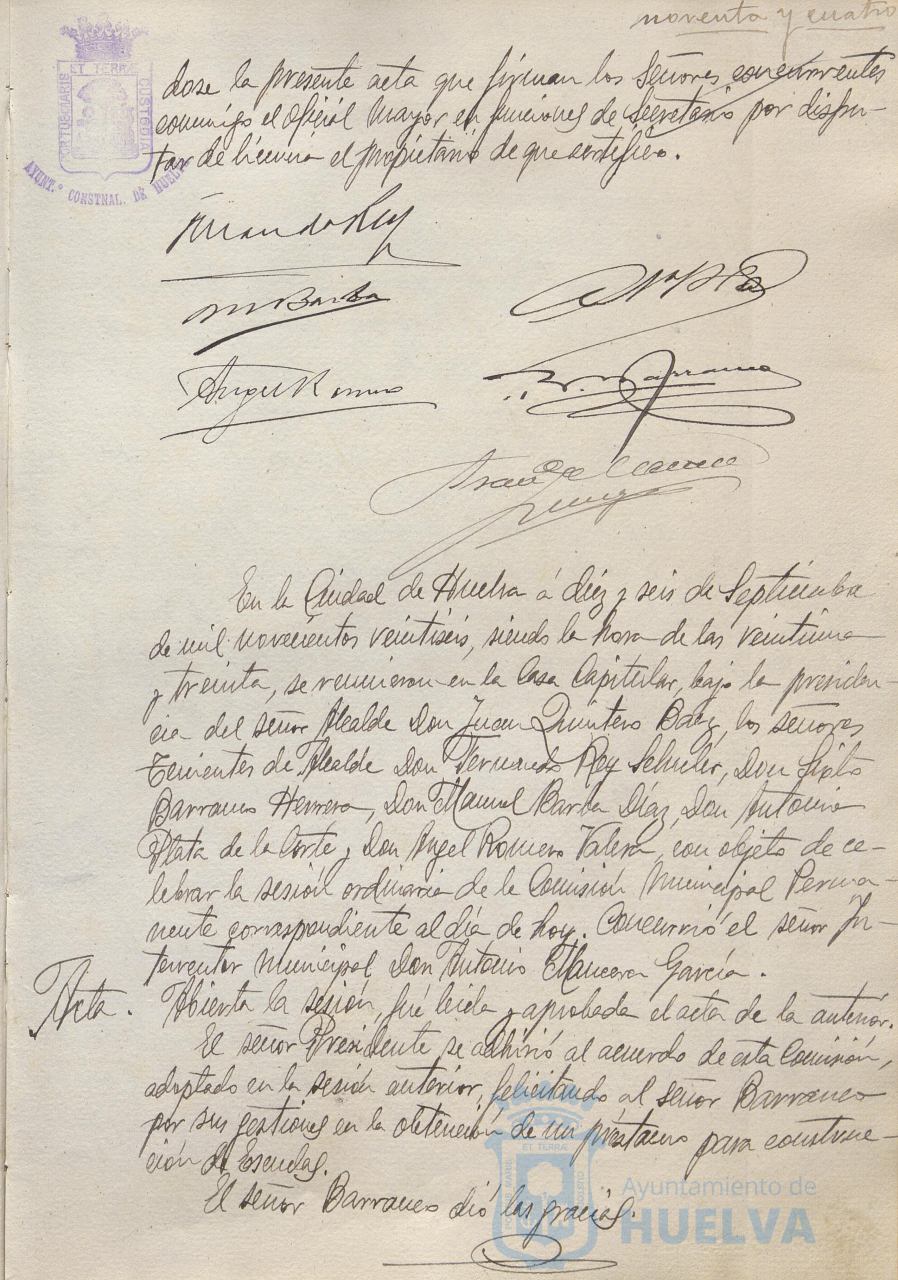 noventa y cuatro
PORTUS MARIS ET TERRÆ CUSTODIA
AYUNT.º CONSTNAL. DE HUELVA
dose la presente acta que firman los Señores concurrentes
conmigo el Oficial Mayor en funciones de Secretario por disfru-
tar de licencia el propietario de que certifico.
Fernando Rey
M Barba
Angel Romero
S. Barranco
En la Ciudad de Huelva á diez y seis de Septiembre
de mil novecientos veintiseis, siendo la hora de las veintiuna
y treinta, se reunieron en la Casa Capitular, bajo la presiden-
cia del señor Alcalde Don Juan Quintero Baez, los señores
Tenientes de Alcalde Don Fernando Rey Schuler, Don Sixto
Barranco Herrera, Don Manuel Barba Díaz, Don Antonio
Plata de la Corte y Don Angel Romero Valera, con objeto de ce-
lebrar la sesión ordinaria de la Comisión Municipal Perma-
nente correspondiente al día de hoy. Concurrió el señor In-
terventor Municipal Don Antonio Mancera García.
Acta. Abierta la sesión, fué leida y aprobada el acta de la anterior.
El señor Presidente se adhirió al acuerdo de esta Comisión,
adoptado en la sesión anterior, felicitando al señor Barranco
por sus gestiones en la obtención de un préstamo para construc-
ción de Escuelas.
El señor Barranco dió las gracias.
Ayuntamiento de
HUELVA